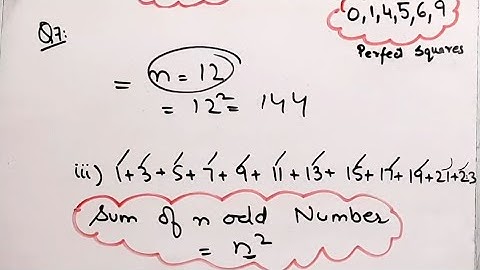 0,1,4,5,6,9
Q7:
Perfect Squares
= n = 12
= 12² = 144
iii) 1+3+5+7+9+11+13+15+17+19+21+23
Sum of n odd Number
= n²